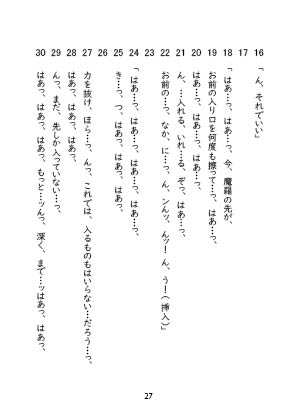 16 「ん、それでいい」
17
18 「はあ…っ、はあ…っ、今、魔羅の先が、
19 お前の入り口を何度も擦って…っ、はあ…っ、
20 はあ…っ、はあ…っ、はあ…っ、
21 ん、…入れる、いれ…る、ぞっ、はあ…っ、
22 お前の…っ、なか、に…っ、ん、ンんッ、んッ！ん、う！(挿入)」
23
24 「はあ…っ、はあ…っ、はあ…っ、はあ…っ、
25 き…っ、つ、はあっ、はあっ、はあっ、
26
27 力を抜け、ほら…っ、んっ、これでは、入るものもはいらない…だろう…っ、
28 はあっ、はあっ、はあっ、
29 んっ、まだ、先しか入っていない…っ、
30 はあっ、はあっ、はあっ、もっと…ッんっ、深く、まで…ッはあっ、はあっ、
27